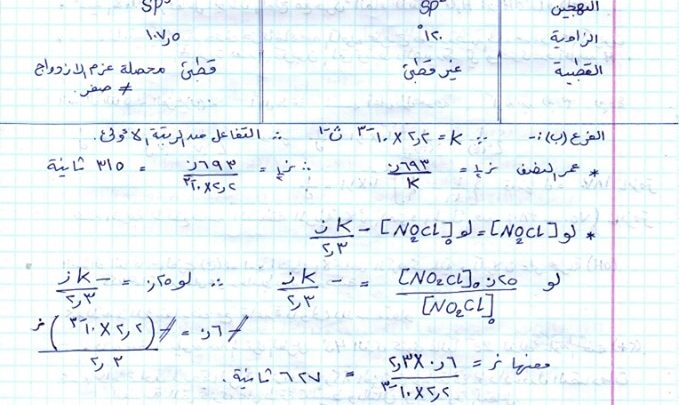 التهجين SP² SP³
الزاوية ١٢٠° ١٠٧,٥
القطبية غير قطبي قطبي محصلة عزم الازدواج
≠ صفر.
الفرع (ب):- ∵ K = ٢,٢ × ١٠⁻³ ث⁻¹ ∴ التفاعل من المرتبة الاولى.
* عمر النصف ز½ = ٠,٦٩٣ / K ∴ ز½ = ٠,٦٩٣ / ٢,٢ × ١٠⁻³ = ٣١٥ ثانية
* لو [NO₂Cl] = لو [NO₂Cl]₀ − K ز / ٢,٣
لو ٠,٢٥ [NO₂Cl]₀ / [NO₂Cl]₀ = − K ز / ٢,٣ ∴ لو ٠,٢٥ = − K ز / ٢,٣
− ٠,٦ = − (٢,٢ × ١٠⁻³) ز / ٢,٣
ومنها ز = ٠,٦ × ٢,٣ / ٢,٢ × ١٠⁻³ = ٦٢٧ ثانية.